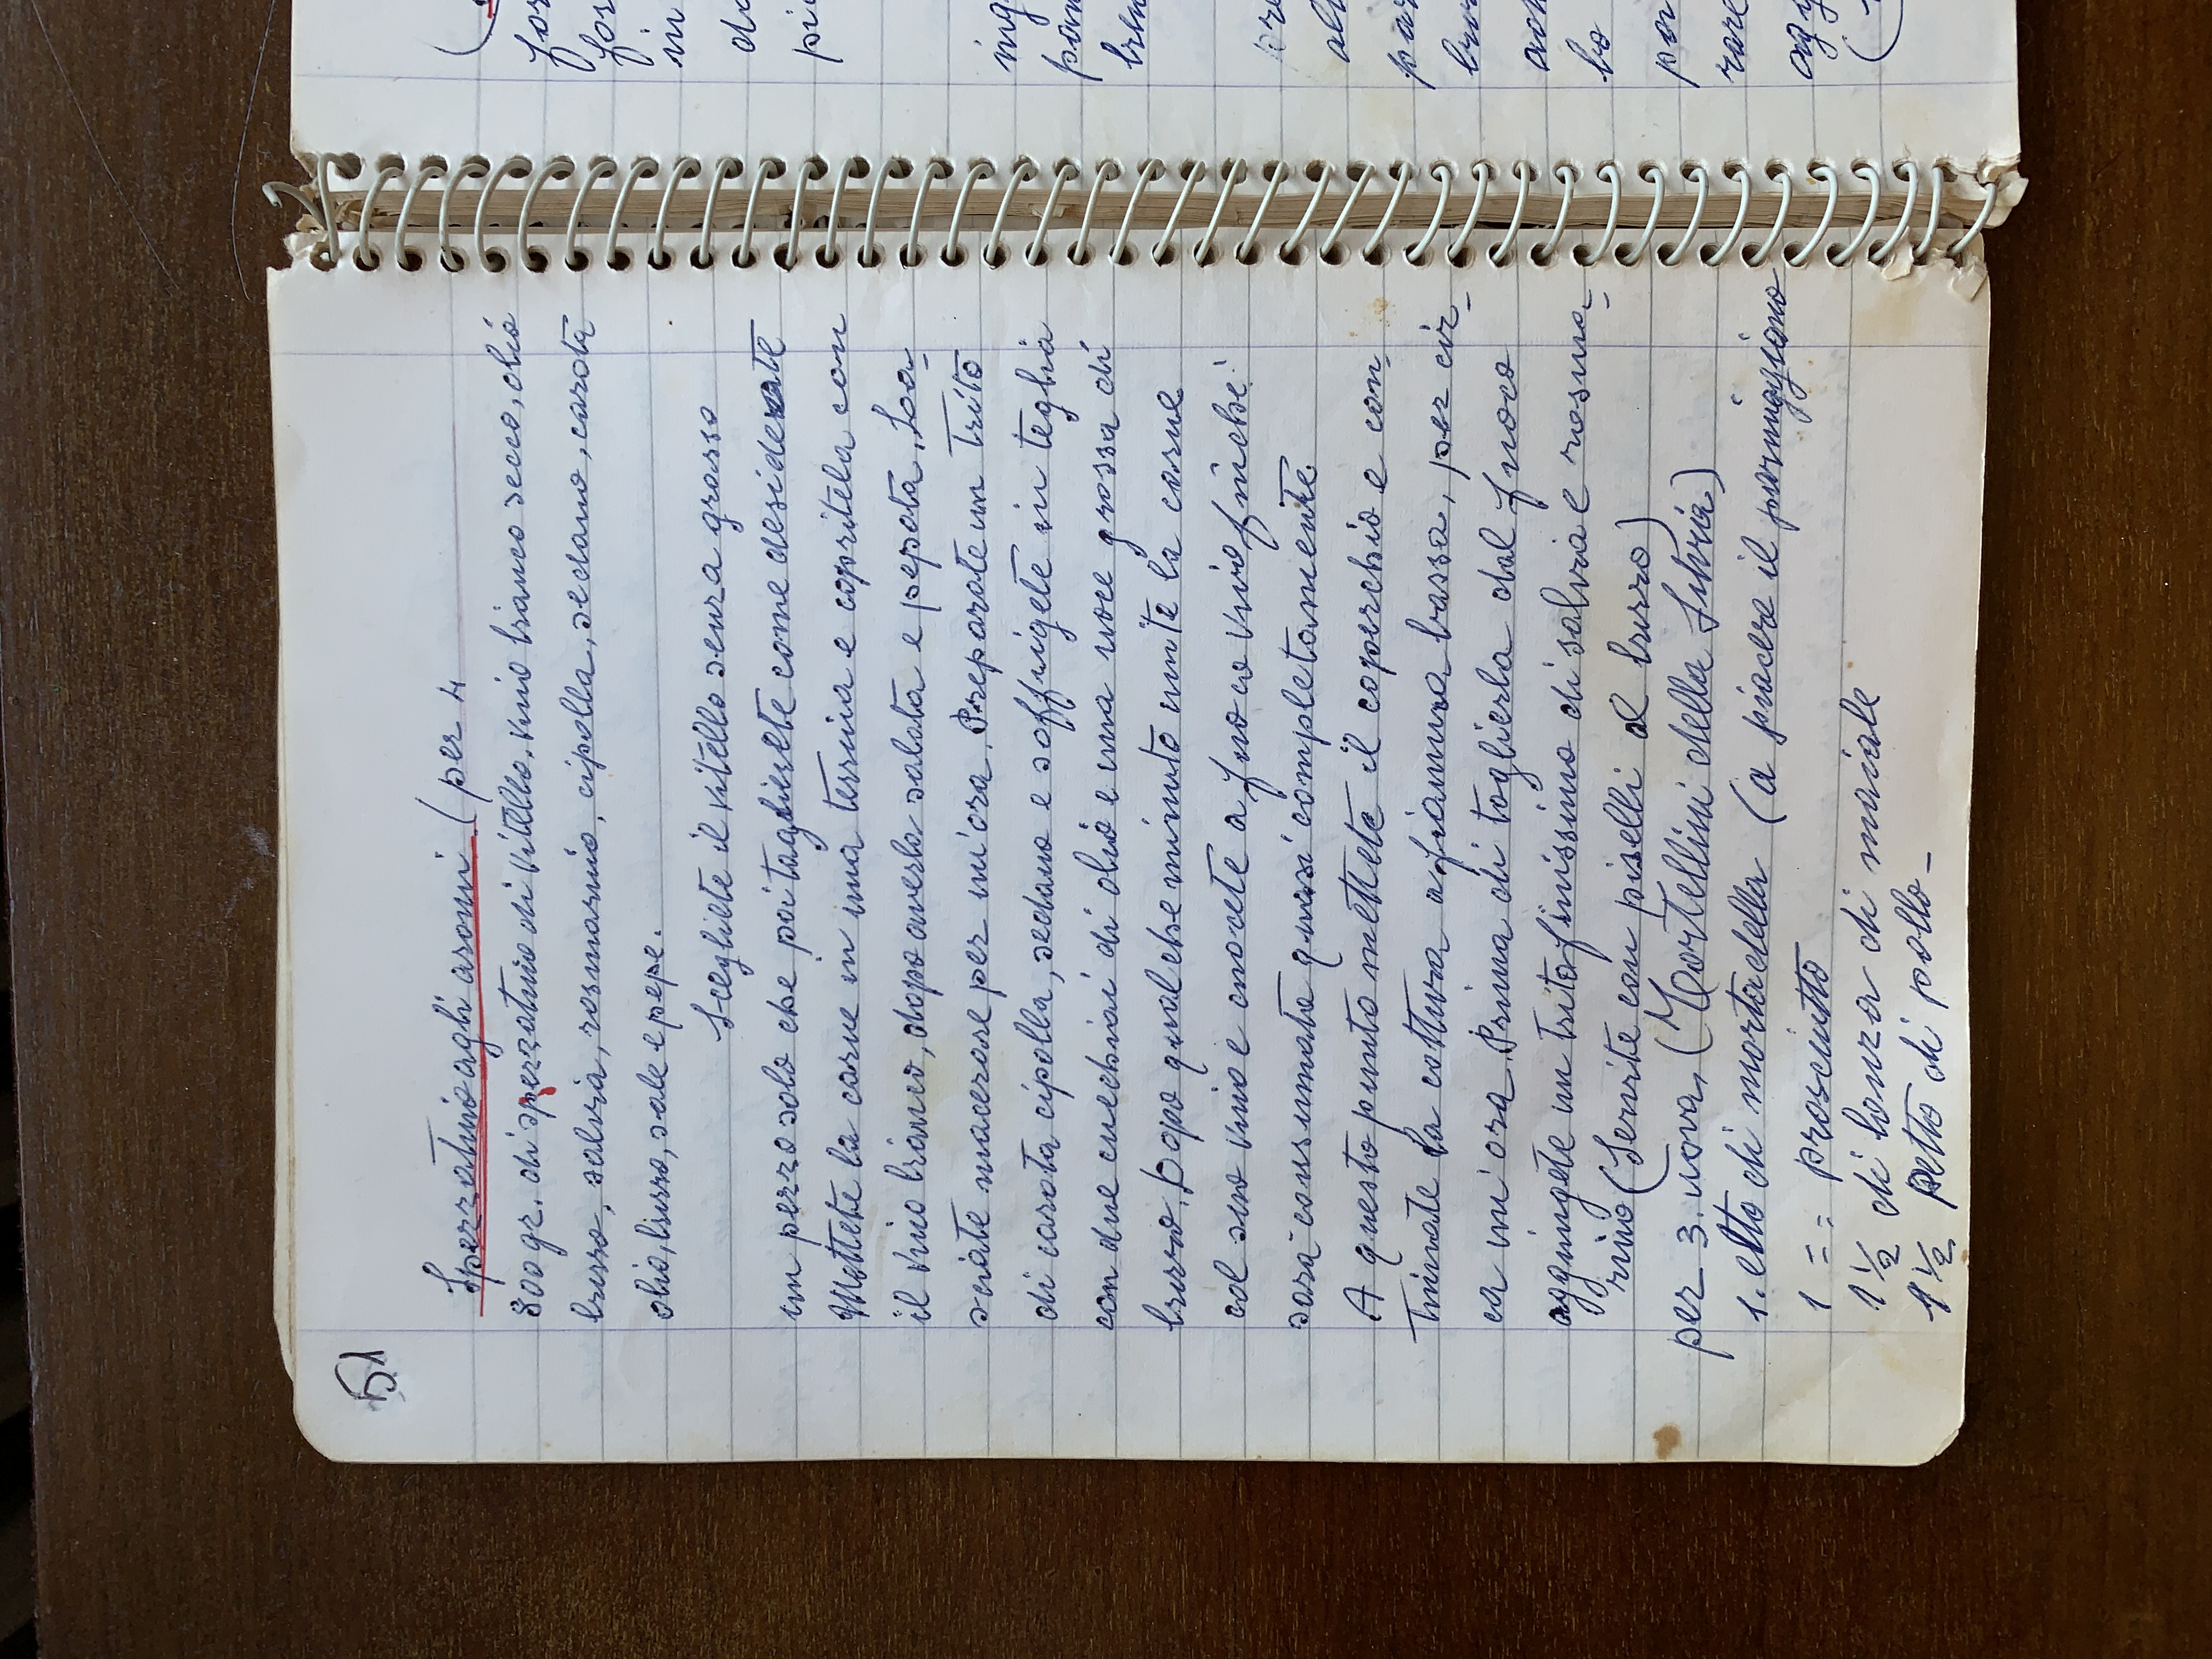 51
Spezzatino agli aromi (per 4
800 gr. di spezzatino di vitello. vino bianco secco, olio
burro, salvia, rosmarino, cipolla, sedano, carota
olio, burro, sale e pepe.
Scegliete il vitello senza grasso
un pezzo solo che poi taglierete come desiderate
Mettete la carne in una terrina e copritela con
il vino bianco, dopo averla salata e pepata. La-
sciate macerare per un'ora. Preparate un trito
di carota cipolla, sedano e soffrigete in teglia
con due cucchiai di olio e una noce grossa di
burro. Dopo qualche minuto unite la carne
col suo vino e cuocete a fuoco vivo finche'
sarà consumato quasi completamente.
A questo punto mettete il coperchio e con-
tinuate la cottura a fiamma bassa, per cir-
ca un'ora. Prima di toglierla dal fuoco
aggiungete un trito finissimo di salvia e rosma-
rino (Servite con piselli al burro)
per 3. uova, (Tortellini della Silvia)
1. etto di mortadella (a piacere il parmiggiano
1 = = prosciutto
1 1/2 di lonza di maiale
1 1/2 petto di pollo -
for
for
in
pi
ing
pan
pre
par
bo
rare
agg